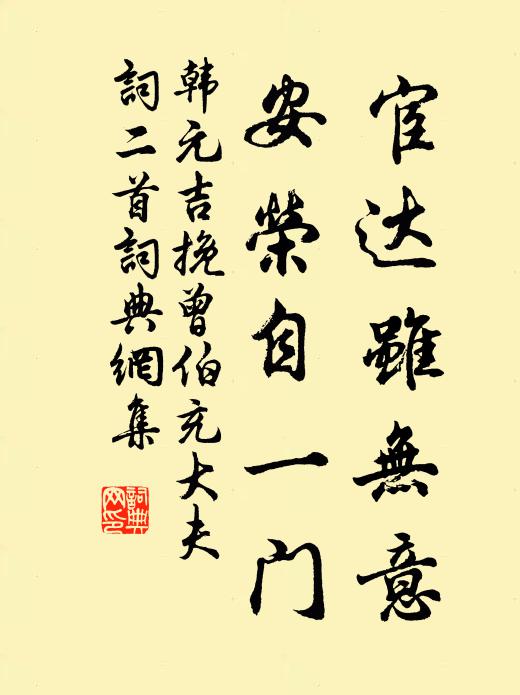 宦达雖無意
安榮自一门
韩元吉挽曾伯充大夫
詞二首詞典網集
詞典网印